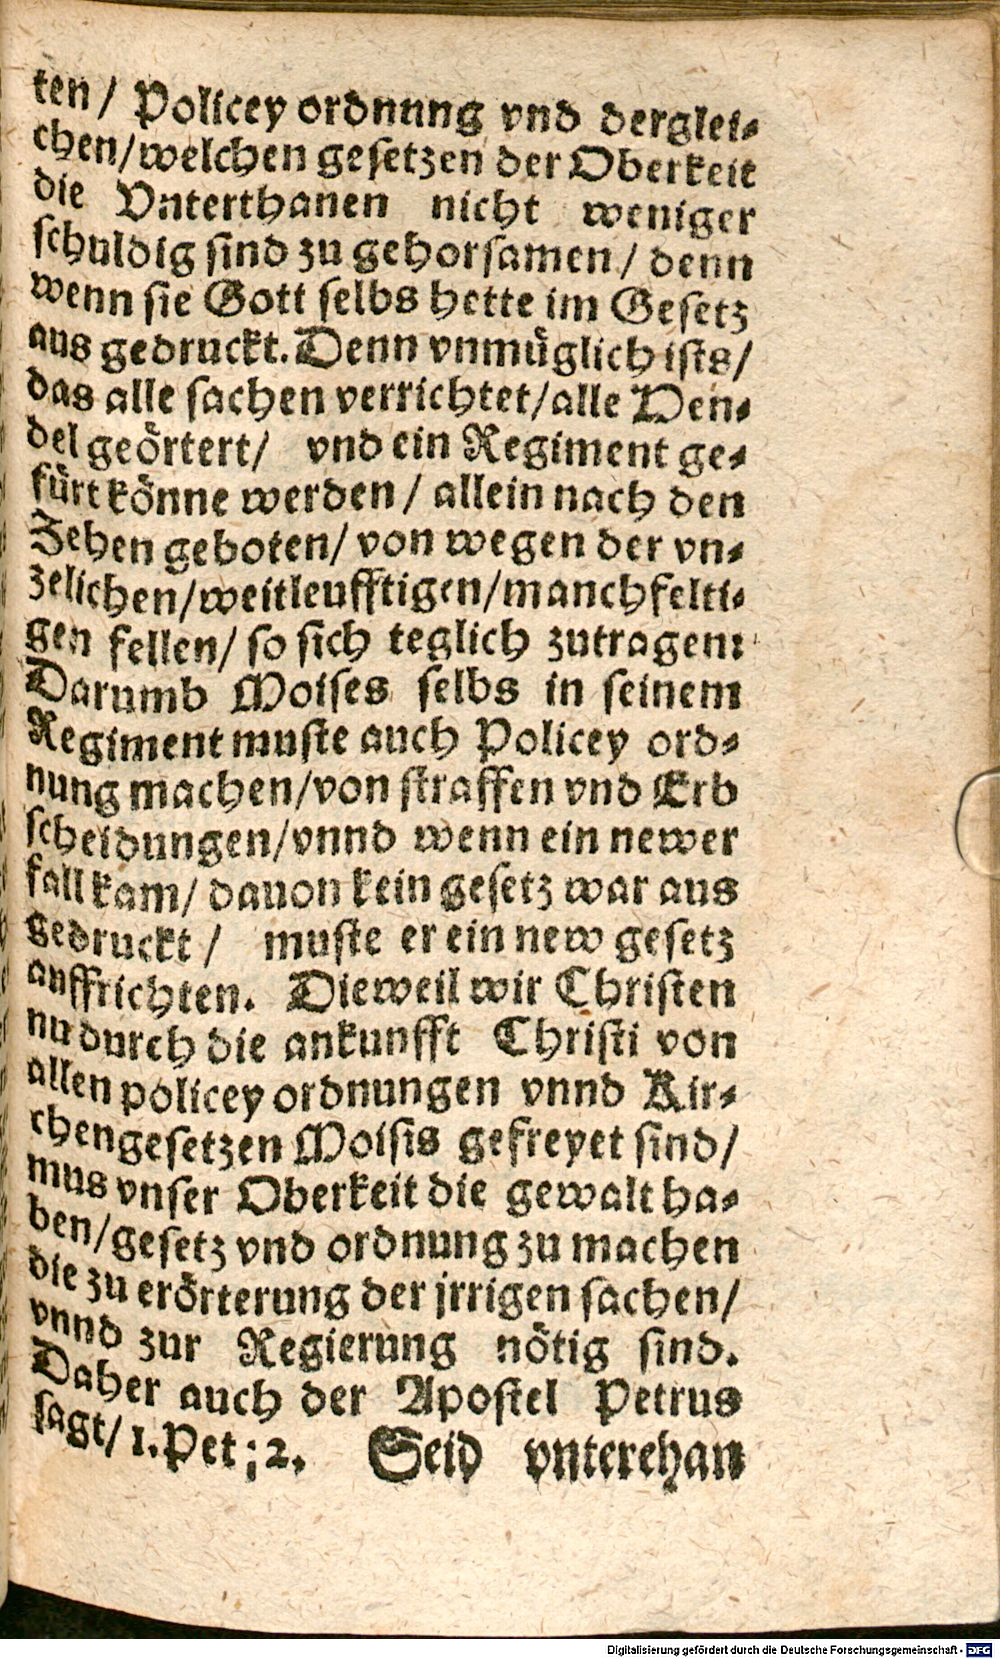 ten/ Policey ordnung vnd derglei-
chen/welchen gesetzen der Oberkeit
die Vnterthanen nicht weniger
schuldig sind zu gehorsamen/ denn
wenn sie Gott selbs hette im Gesetz
aus gedruckt. Denn vnmüglich ists/
das alle sachen verrichtet/alle Hen-
del geörtert/ vnd ein Regiment ge-
fürt könne werden/ allein nach den
Zehen geboten/ von wegen der vn-
zelichen/weitleufftigen/manchfelti-
gen fellen/ so sich teglich zutragen:
Darumb Moises selbs in seinem
Regiment muste auch Policey ord-
nung machen/von straffen vnd Erb
scheidungen/vnnd wenn ein newer
fall kam/ dauon kein gesetz war aus
gedruckt/ muste er ein new gesetz
auffrichten. Dieweil wir Christen
nu durch die ankunfft Christi von
allen policey ordnungen vnnd Kir-
chengesetzen Moisis gefreyet sind/
mus vnser Oberkeit die gewalt ha-
ben/gesetz vnd ordnung zu machen
die zu erörterung der jrrigen sachen/
vnnd zur Regierung nötig sind.
Daher auch der Apostel Petrus
sagt/ 1.Pet; 2. Seid vnterthan
Digitalisierung gefördert durch die Deutsche Forschungsgemeinschaft - DFG